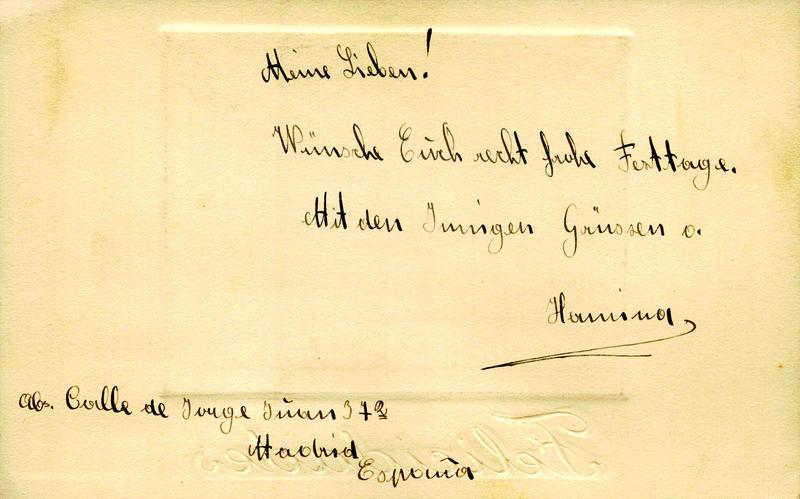 Meine Lieben!
Wünsche Euch recht frohe Festtage.
Mit den Innigen Grüssen o.
Hanina
Abs. Calle de Jorge Juan
Madrid
España
Felicidades